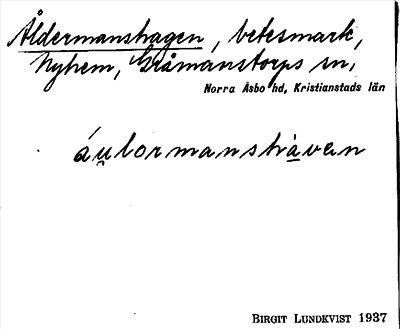 Åldermanshagen, betesmark,
Nyhem, Gråmanstorps sn,
Norra Åsbo hd, Kristianstads län
BIRGIT LUNDKVIST 1937